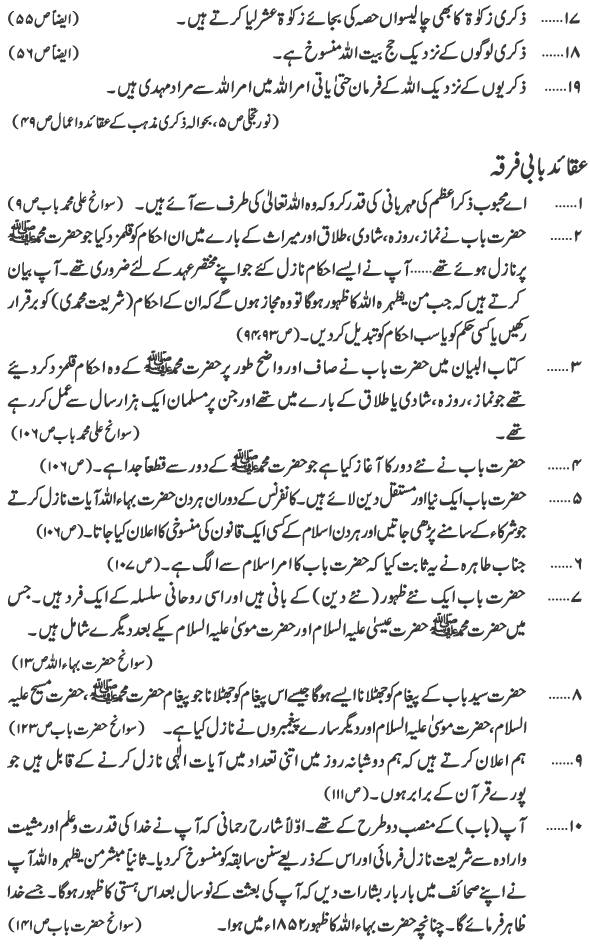 ۱۷...... ذکری زکوٰۃ کا بھی چالیسواں حصہ کی بجائے زکوٰۃ عشر لیا کرتے ہیں۔ (ایضاً ص۵۵)
۱۸...... ذکری لوگوں کے نزدیک حج بیت اللہ منسوخ ہے۔ (ایضاً ص۵۶)
۱۹...... ذکریوں کے نزدیک اللہ کے فرمان حتیٰ یاتی امر اللہ میں امر اللہ سے مراد مہدی ہیں۔
(نور تجلی ص۵، بحوالہ ذکری مذہب کے عقائد و اعمال ص۴۹)
عقائد بابی فرقہ
۱...... اے محبوب ذکر اعظم کی مہربانی کی قدر کرو کہ وہ اللہ تعالیٰ کی طرف سے آئے ہیں۔ (سوانح علی محمد باب ص۹)
۲...... حضرت باب نے نماز، روزہ، شادی، طلاق اور میراث کے بارے میں ان احکام کو قلمزد کیا جو حضرت محمدﷺ
پر نازل ہوئے تھے...... آپ نے ایسے احکام نازل کئے جو اپنے مختصر عہد کے لئے ضروری تھے۔ آپ بیان
کرتے ہیں کہ جب من یظہرہ اللہ کا ظہور ہوگا تو وہ مجاز ہوں گے کہ ان کے احکام (شریعت محمدی) کو برقرار
رکھیں یا کسی حکم کو یا سب احکام کو تبدیل کردیں۔ (ص۹۳،۹۴)
۳...... کتاب البیان میں حضرت باب نے صاف اور واضح طور پر حضرت محمدﷺ کے وہ احکام قلمزد کر دیئے
تھے جو نماز، روزہ، شادی یا طلاق کے بارے میں تھے اور جن پر مسلمان ایک ہزار سال سے عمل کر رہے
تھے۔ (سوانح علی محمد باب ص۱۰۶)
۴...... حضرت باب نے نئے دور کا آغاز کیا ہے جو حضرت محمدﷺ کے دور سے قطعاً جدا ہے۔ (ص۱۰۶)
۵...... حضرت باب ایک نیا اور مستقل دین لائے ہیں۔ کانفرنس کے دوران ہر دن حضرت بہاء اللہ آیات نازل کرتے
جو شرکاء کے سامنے پڑھی جاتیں اور ہر دن اسلام کے کسی ایک قانون کی منسوخی کا اعلان کیا جاتا۔ (ص۱۰۶)
۶...... جناب طاہرہ نے یہ ثابت کیا کہ حضرت باب کا امر اسلام سے الگ ہے۔ (ص۱۰۷)
۷...... حضرت باب ایک نئے ظہور (نئے دین) کے بانی ہیں اور اسی روحانی سلسلہ کے ایک فرد ہیں۔ جس
میں حضرت محمدﷺ حضرت عیسیٰ علیہ السلام اور حضرت موسیٰ علیہ السلام یکے بعد دیگرے شامل ہیں۔
(سوانح حضرت بہاء اللہ ص۱۳)
۸...... حضرت سید باب کے پیغام کو جھٹلانا ایسے ہوگا جیسے اس پیغام کو جھٹلانا جو پیغام حضرت محمدﷺ، حضرت مسیح علیہ
السلام، حضرت موسیٰ علیہ السلام اور دیگر سارے پیغمبروں نے نازل کیا ہے۔ (سوانح حضرت باب ص۱۲۳)
۹...... ہم اعلان کرتے ہیں کہ ہم دو شبانہ روز میں اتنی تعداد میں آیات الٰہی نازل کرنے کے قابل ہیں جو
پورے قرآن کے برابر ہوں۔ (ص۱۱۱)
۱۰...... آپ (باب) کے منصب دو طرح کے تھے۔ اوّلاً شارح رحمانی کہ آپ نے خدا کی قدرت و علم اور مشیت
و ارادہ سے شریعت نازل فرمائی اور اس کے ذریعے سنن سابقہ کو منسوخ کر دیا۔ ثانیاً مبشر من یظہرہ اللہ آپ
نے اپنے صحائف میں بار بار بشارات دیں کہ آپ کی بعثت کے نو سال بعد اس ہستی کا ظہور ہوگا۔ جسے خدا
ظاہر فرمائے گا۔ چنانچہ حضرت بہاء اللہ کا ظہور ۱۸۵۲ء میں ہوا۔ (سوانح حضرت باب ص۱۴۱)